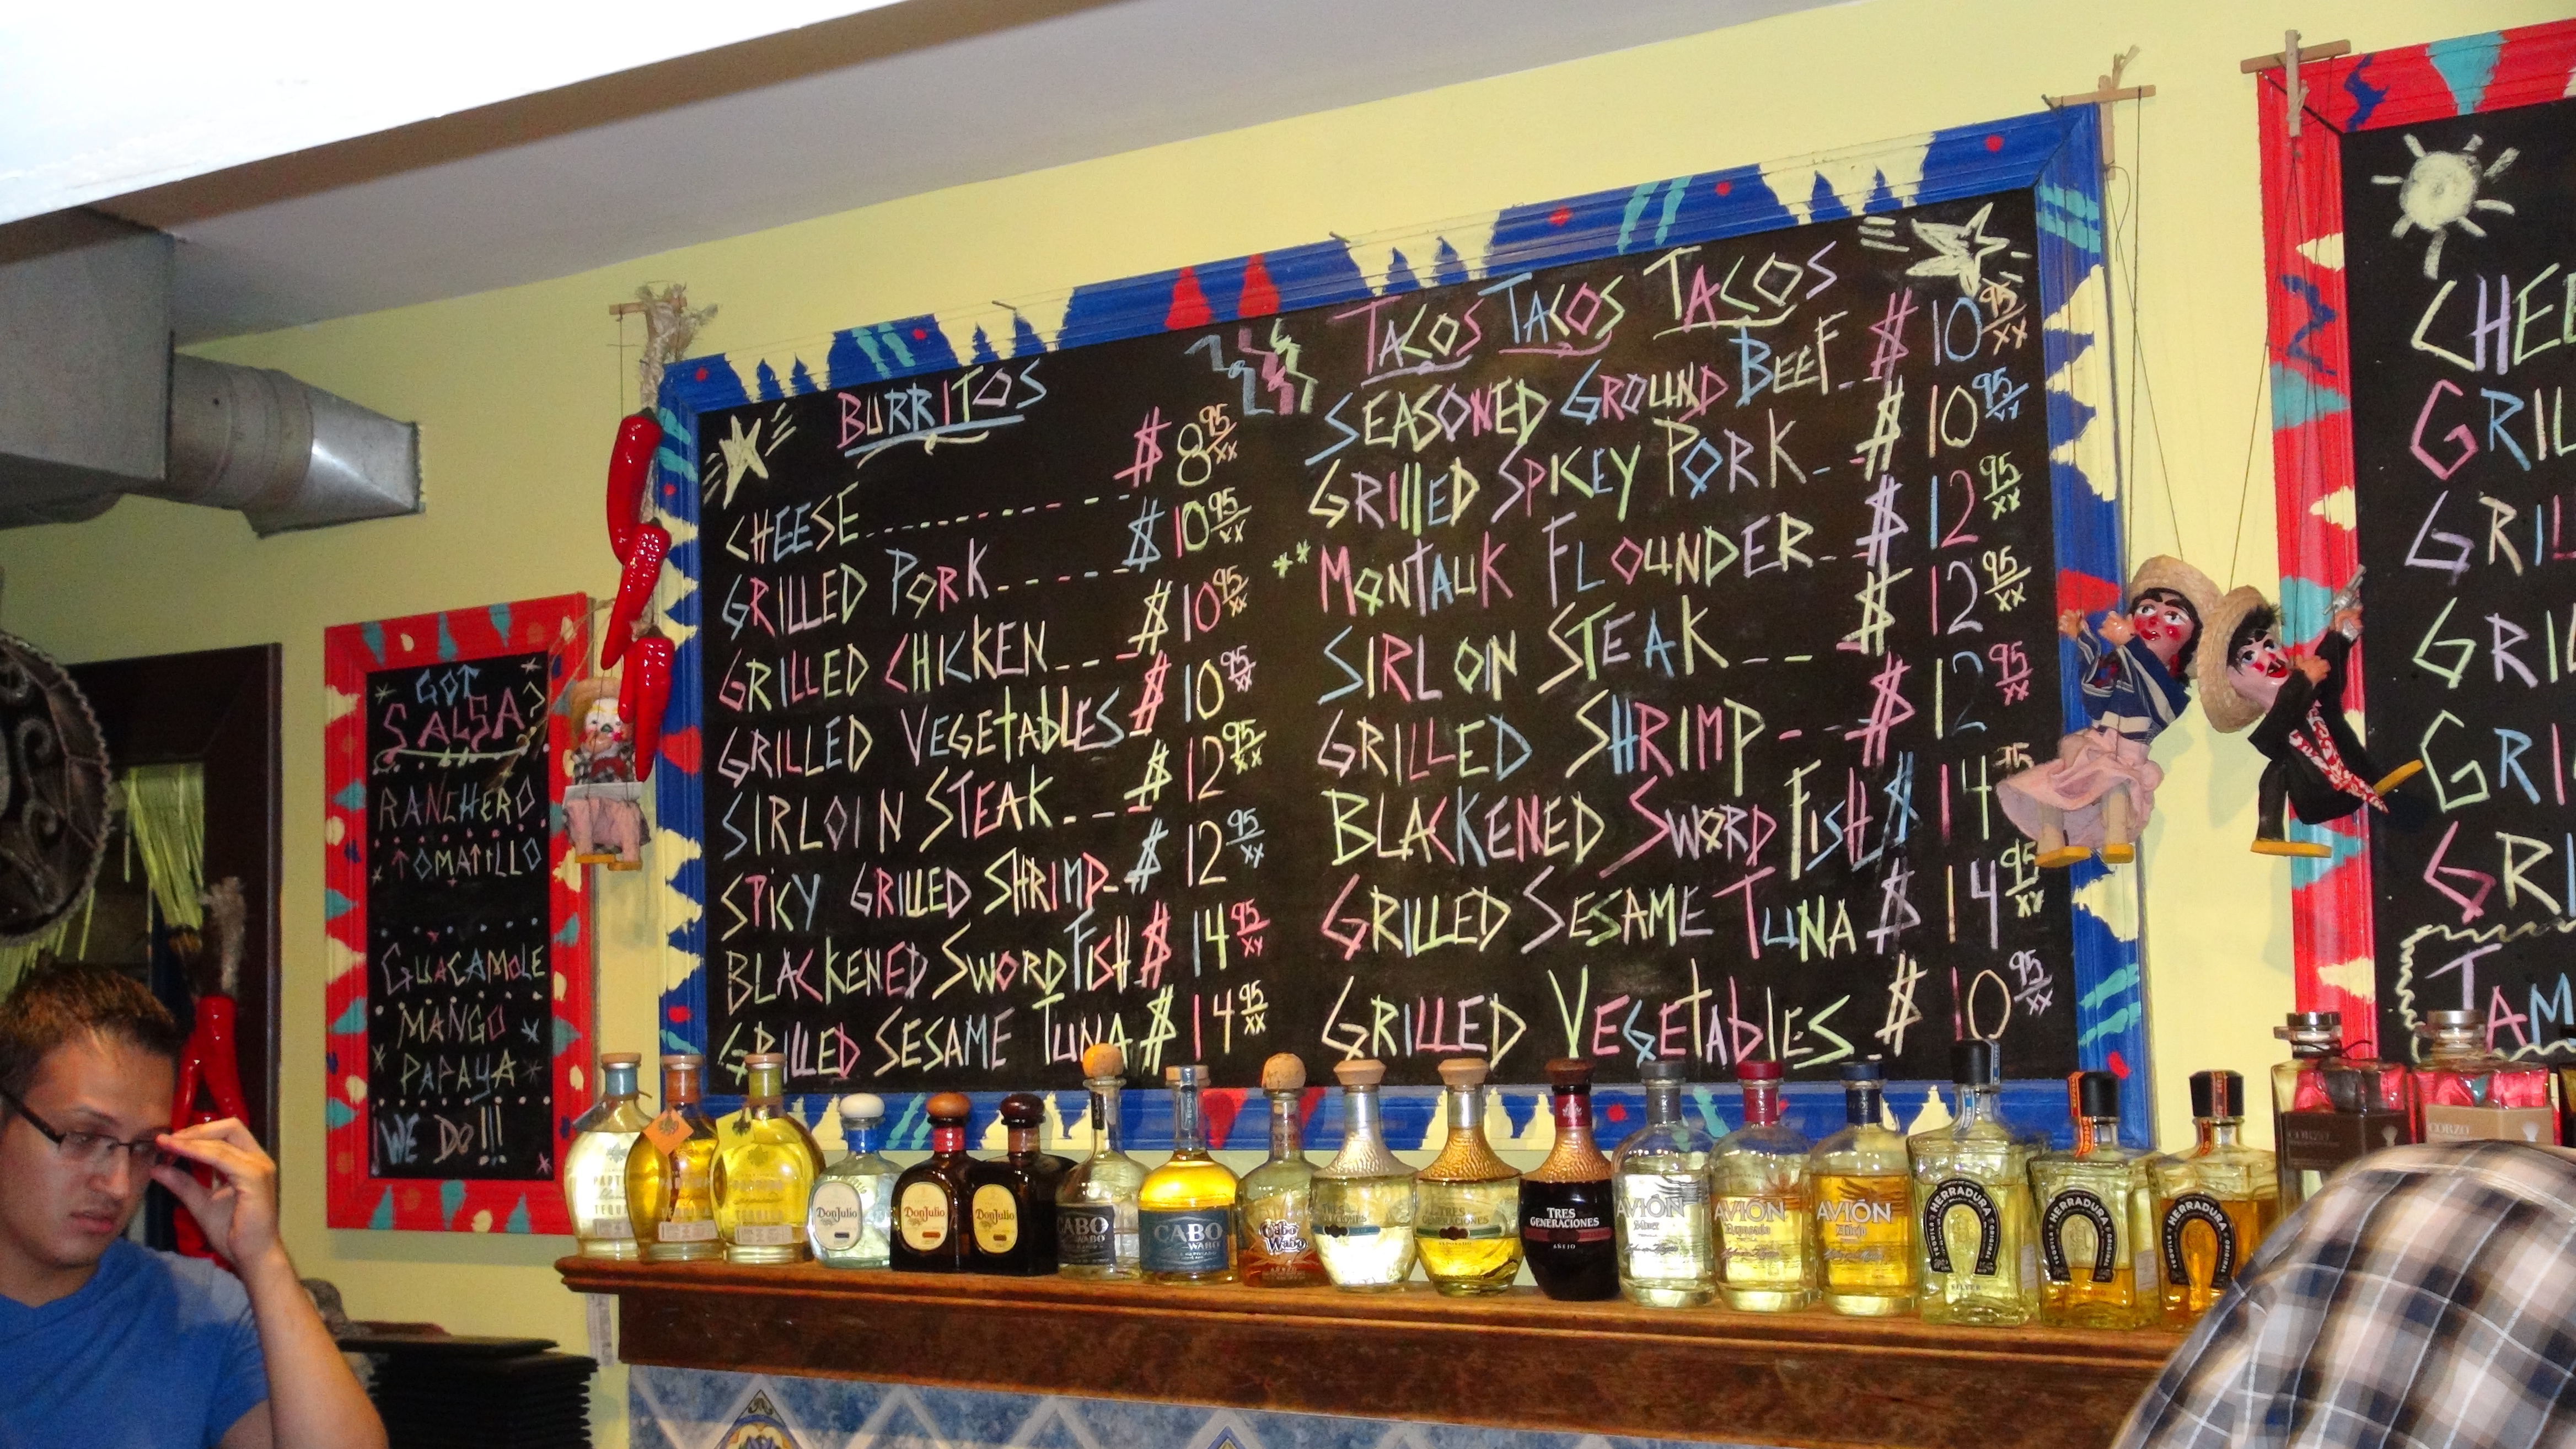 GOT
SALSA?
RANCHERO
TOMATILLO
GUACAMOLE
MANGO
PAPAYA
WE DO!!!
BURRITOS
CHEESE.......... $ 8 95/xx
GRILLED PORK----- $ 10 95/xx
GRILLED CHICKEN---- $ 10 95/xx
GRILLED VEGETABLES $ 10 95/xx
SIRLOIN STEAK---- $ 12 95/xx
SPICY GRILLED SHRIMP-- $ 12 95/xx
BLACKENED SWORD FISH $ 14 95/xx
GRILLED SESAME TUNA $ 14 95/xx
TACOS TACOS TACOS
SEASONED GROUND BEEF-- $ 10 95/xx
GRILLED SPICEY PORK-- $ 10 95/xx
** MONTAUK FLOUNDER-- $ 12 95/xx
SIRLOIN STEAK--- $ 12 95/xx
GRILLED SHRIMP-- $ 12 95/xx
BLACKENED SWORD FISH $ 14
GRILLED SESAME TUNA $ 14 95/xx
GRILLED VEGETABLES $ 10 95/xx
DonJulio
DonJulio
DonJulio
CABO
WABO
CABO
WABO
Cabo
Wabo
TRES
GENERACIONES
TRES
GENERACIONES
AÑEJO
AVIÓN
Silver
AVIÓN
Reposado
AVIÓN
Añejo
HERRADURA
HERRADURA
HERRADURA
CORZO
CORZO